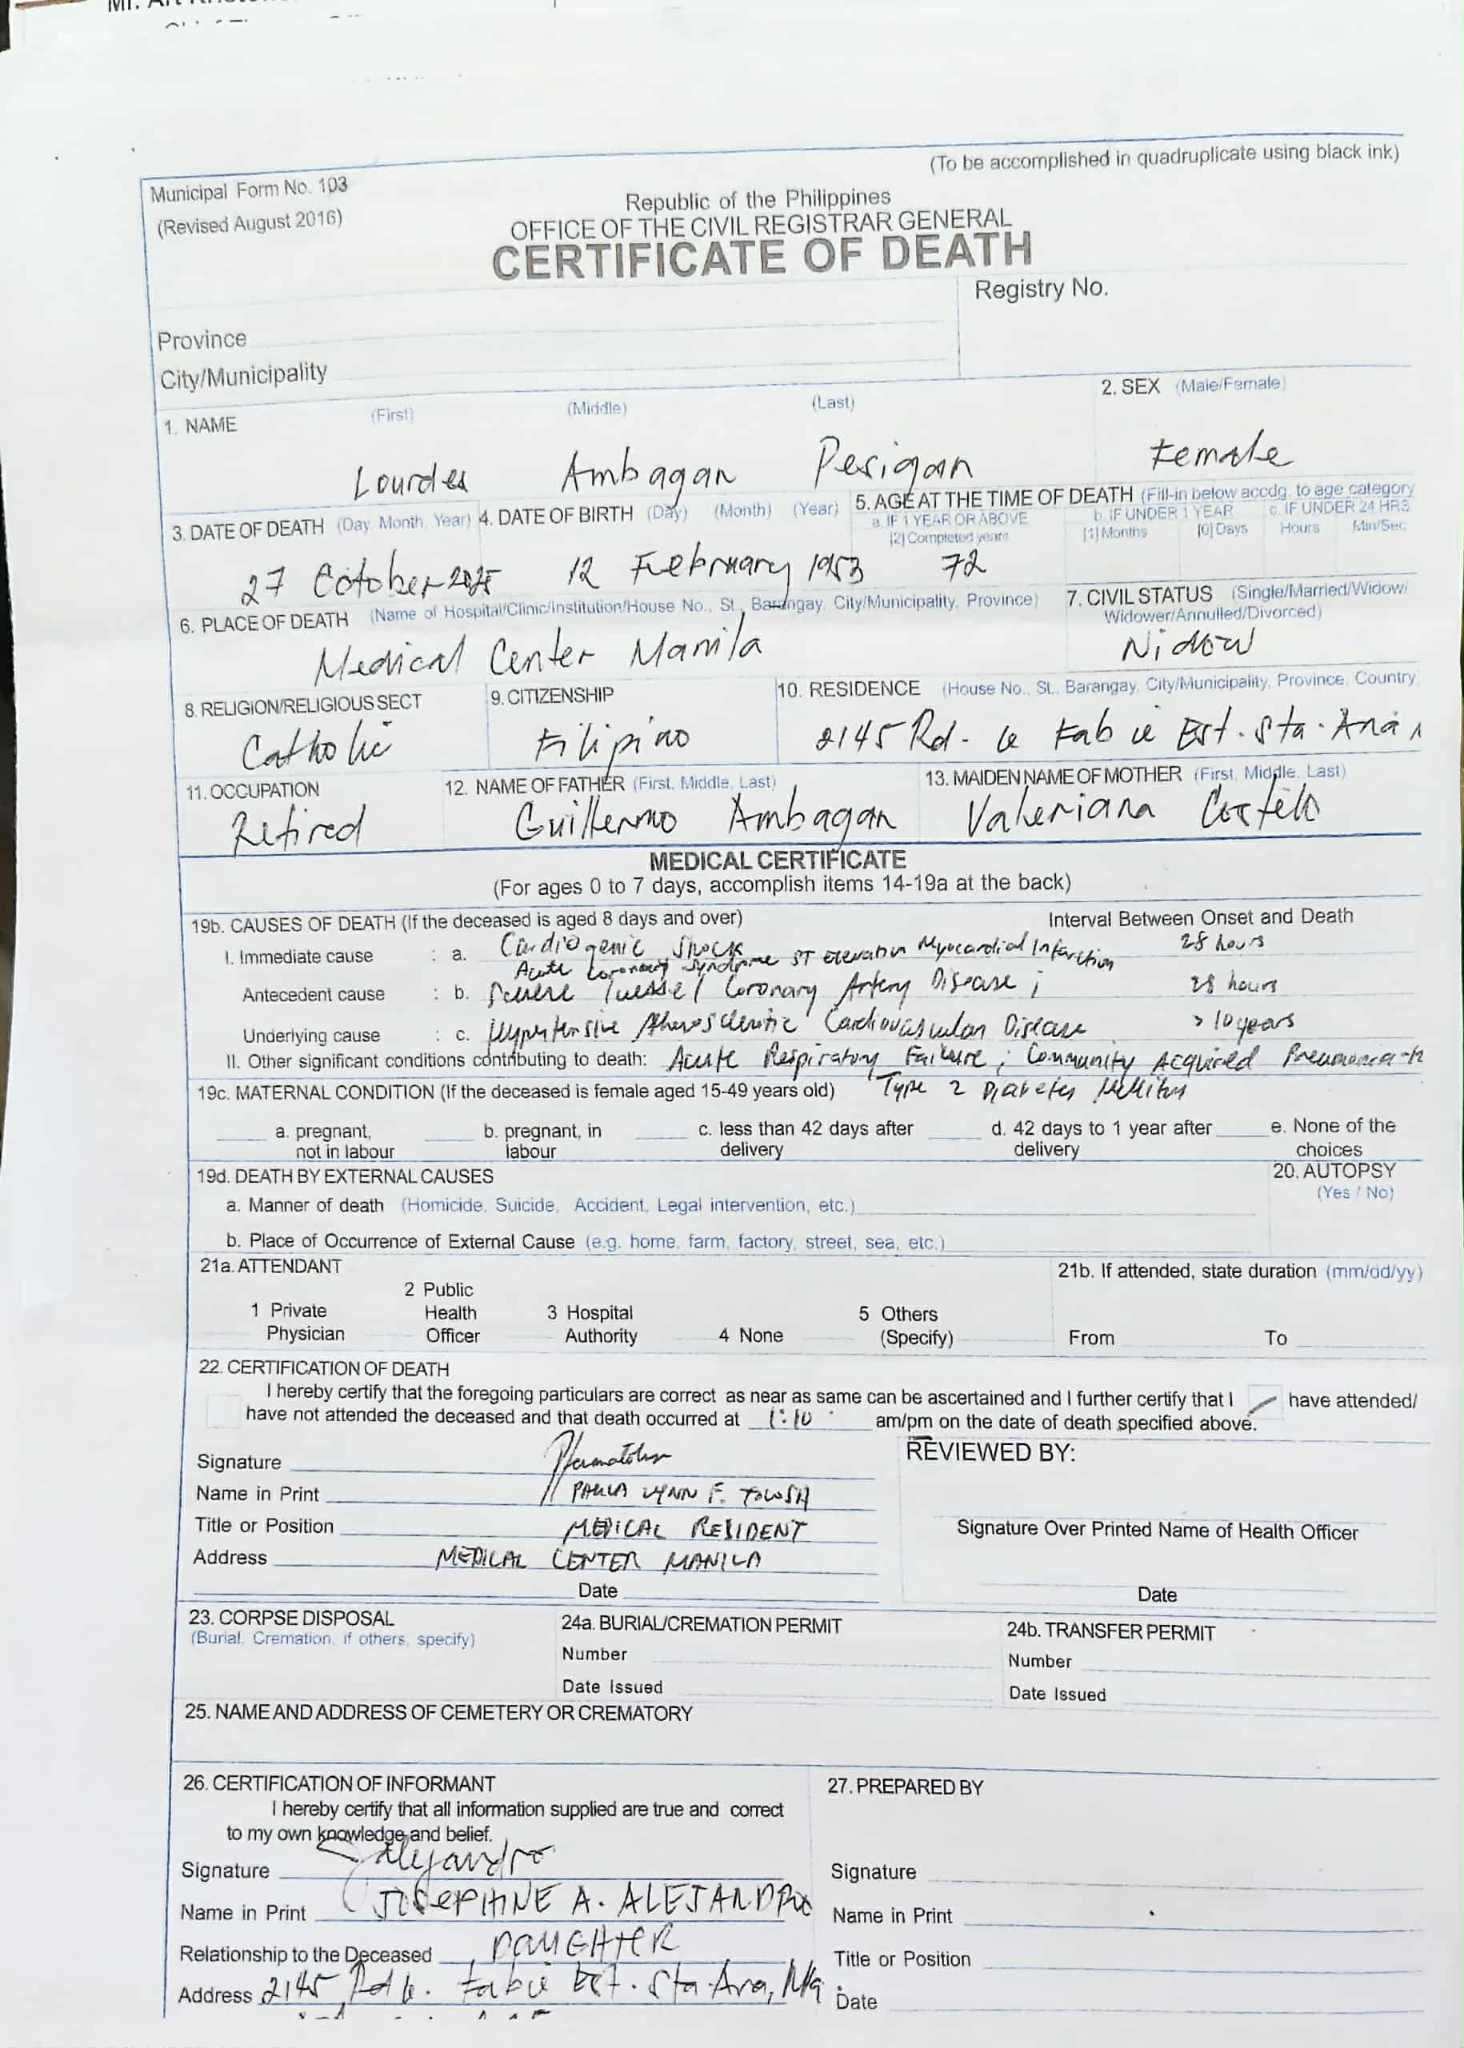 Municipal Form No. 103
(Revised August 2016)
(To be accomplished in quadruplicate using black ink)
Republic of the Philippines
OFFICE OF THE CIVIL REGISTRAR GENERAL
CERTIFICATE OF DEATH
Province
City/Municipality
Registry No.
1. NAME (First) (Middle) (Last)
Lourdes Ambagan Perigan
2. SEX (Male/Female)
Female
3. DATE OF DEATH (Day, Month, Year)
27 October 2025
4. DATE OF BIRTH (Day) (Month) (Year)
12 February 1953
5. AGE AT THE TIME OF DEATH (Fill-in below accdg. to age category
a. IF 1 YEAR OR ABOVE
[2] Completed years
72
b. IF UNDER 1 YEAR
[1] Months [0] Days
c. IF UNDER 24 HRS
Hours Min/Sec
6. PLACE OF DEATH (Name of Hospital/Clinic/Institution/House No., St., Barangay, City/Municipality, Province)
Medical Center Manila
7. CIVIL STATUS (Single/Married/Widow/
Widower/Annulled/Divorced)
Widow
8. RELIGION/RELIGIOUS SECT
Catholic
9. CITIZENSHIP
Filipino
10. RESIDENCE (House No., St., Barangay, City/Municipality, Province, Country
2145 Rd. 6 Fabie Est. Sta. Ana
11. OCCUPATION
Retired
12. NAME OF FATHER (First, Middle, Last)
Guillermo Ambagan
13. MAIDEN NAME OF MOTHER (First, Middle, Last)
Valeriana
MEDICAL CERTIFICATE
(For ages 0 to 7 days, accomplish items 14-19a at the back)
19b. CAUSES OF DEATH (If the deceased is aged 8 days and over) Interval Between Onset and Death
I. Immediate cause : a. Cardiogenic Shock 28 hours
Acute Coronary Syndrome ST Elevation Myocardial Infarction
Antecedent cause : b. Severe Vessel Coronary Artery Disease ; 28 hours
Underlying cause : c. Hypertensive Atherosclerotic Cardiovascular Disease > 10 years
II. Other significant conditions contributing to death: Acute Respiratory Failure ; Community Acquired Pneumonia
Type 2 Diabetes Mellitus
19c. MATERNAL CONDITION (If the deceased is female aged 15-49 years old)
a. pregnant, not in labour
b. pregnant, in labour
c. less than 42 days after delivery
d. 42 days to 1 year after delivery
e. None of the choices
19d. DEATH BY EXTERNAL CAUSES
a. Manner of death (Homicide, Suicide, Accident, Legal intervention, etc.)
b. Place of Occurrence of External Cause (e.g. home, farm, factory, street, sea, etc.)
20. AUTOPSY
(Yes / No)
21a. ATTENDANT
1 Private Physician
2 Public Health Officer
3 Hospital Authority
4 None
5 Others (Specify)
21b. If attended, state duration (mm/dd/yy)
From To
22. CERTIFICATION OF DEATH
I hereby certify that the foregoing particulars are correct as near as same can be ascertained and I further certify that I have attended/
have not attended the deceased and that death occurred at 1:10 am/pm on the date of death specified above.
Signature
Name in Print PAULA LYNN F.
Title or Position MEDICAL RESIDENT
Address MEDICAL CENTER MANILA
Date
REVIEWED BY:
Signature Over Printed Name of Health Officer
Date
23. CORPSE DISPOSAL
(Burial, Cremation, if others, specify)
24a. BURIAL/CREMATION PERMIT
Number
Date Issued
24b. TRANSFER PERMIT
Number
Date Issued
25. NAME AND ADDRESS OF CEMETERY OR CREMATORY
26. CERTIFICATION OF INFORMANT
I hereby certify that all information supplied are true and correct
to my own knowledge and belief.
Signature Alejandro
Name in Print JOSEPHINE A. ALEJANDRO
Relationship to the Deceased DAUGHTER
Address 2145 Rd 6. Fabie Est. Sta. Ana, Mla.
27. PREPARED BY
Signature
Name in Print
Title or Position
Date